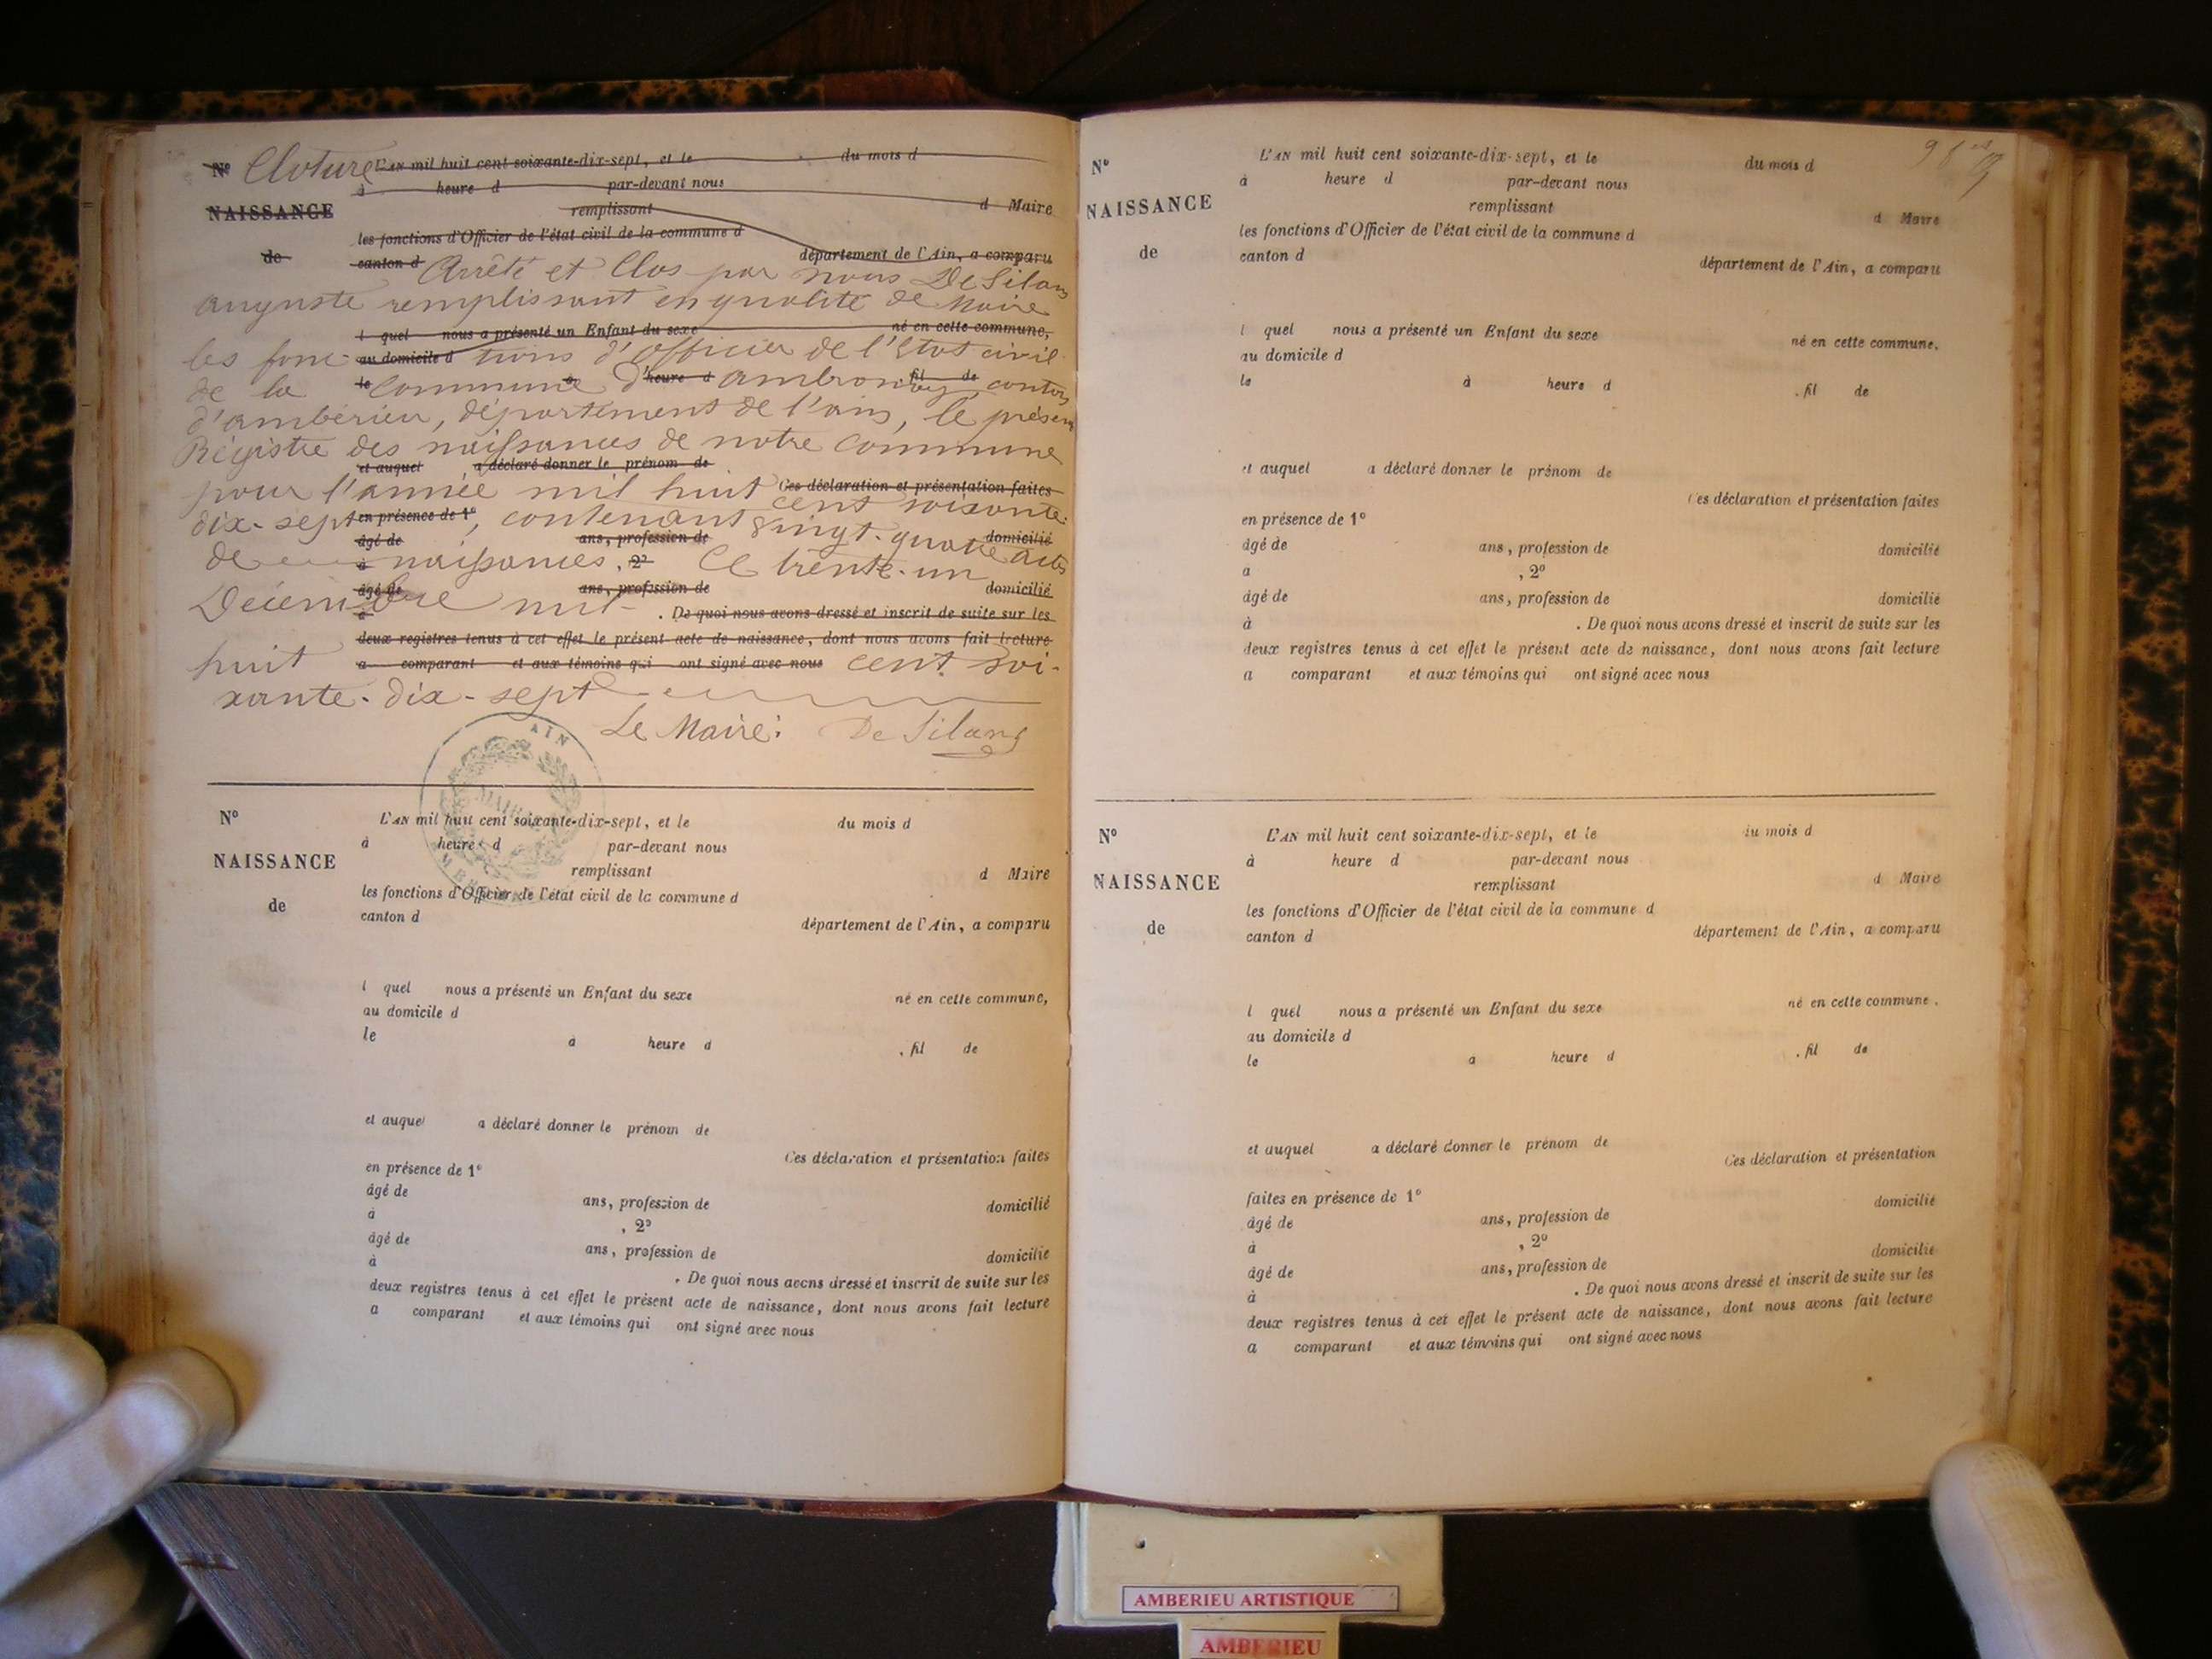 N° Cloture L'AN mil huit cent soixante-dix-sept, et le du mois d
à heure d par-devant nous
NAISSANCE remplissant d Maire
les fonctions d'Officier de l'état civil de la commune d
de canton d département de l'Ain, a comparu
Arrêté et Clos par nous De Silans
auguste remplissant en qualité de Maire
l quel nous a présenté un Enfant du sexe né en cette commune,
les fonc- au domicile d tions d'officier de l'Etat civil
de la le Commune à d' heure d ambronay, fil de canton
d'ambérieu, département de l'ain, le présent
Régistre des naissances de notre Commune
et auquel a déclaré donner le prénom de
pour l'année mil huit Ces déclaration et présentation faites
cent soixante-
dix-sept en présence de 1°, contenant vingt-quatre actes
âgé de ans, profession de domicilié
de à naissances. , 2° Ce trente-un
âgé de ans, profession de domicilié
Décembre mil-
à . De quoi nous avons dressé et inscrit de suite sur les
deux registres tenus à cet effet le présent acte de naissance, dont nous avons fait lecture
huit a comparant et aux témoins qui ont signé avec nous cent soi-
xante-dix-sept
Le Maire: De Silans
AIN
MAIRIE
N° L'AN mil huit cent soixante-dix-sept, et le du mois d
à heure d par-devant nous
NAISSANCE remplissant d Maire
les fonctions d'Officier de l'état civil de la commune d
de canton d département de l'Ain, a comparu
l quel nous a présenté un Enfant du sexe né en cette commune,
au domicile d
le à heure d , fil de
et auquel a déclaré donner le prénom de
Ces déclaration et présentation faites
en présence de 1°
âgé de ans, profession de domicilié
à , 2°
âgé de ans, profession de domicilié
à . De quoi nous avons dressé et inscrit de suite sur les
deux registres tenus à cet effet le présent acte de naissance, dont nous avons fait lecture
a comparant et aux témoins qui ont signé avec nous
N° L'AN mil huit cent soixante-dix-sept, et le du mois d
à heure d par-devant nous
NAISSANCE remplissant d Maire
les fonctions d'Officier de l'état civil de la commune d
de canton d département de l'Ain, a comparu
l quel nous a présenté un Enfant du sexe né en cette commune,
au domicile d
le à heure d , fil de
et auquel a déclaré donner le prénom de
Ces déclaration et présentation faites
en présence de 1°
âgé de ans, profession de domicilié
a , 2°
âgé de ans, profession de domicilié
à . De quoi nous avons dressé et inscrit de suite sur les
deux registres tenus à cet effet le présent acte de naissance, dont nous avons fait lecture
a comparant et aux témoins qui ont signé avec nous
N° L'AN mil huit cent soixante-dix-sept, et le du mois d
à heure d par-devant nous
NAISSANCE remplissant d Maire
les fonctions d'Officier de l'état civil de la commune d
de canton d département de l'Ain, a comparu
l quel nous a présenté un Enfant du sexe né en cette commune.
au domicile d
le a heure d , fil de
et auquel a déclaré donner le prénom de
Ces déclaration et présentation
faites en présence de 1° domicilié
âgé de ans, profession de
à , 2° domicilié
âgé de ans, profession de
à . De quoi nous avons dressé et inscrit de suite sur les
deux registres tenus à cet effet le présent acte de naissance, dont nous avons fait lecture
a comparant et aux témoins qui ont signé avec nous
AMBERIEU ARTISTIQUE
AMBERIEU